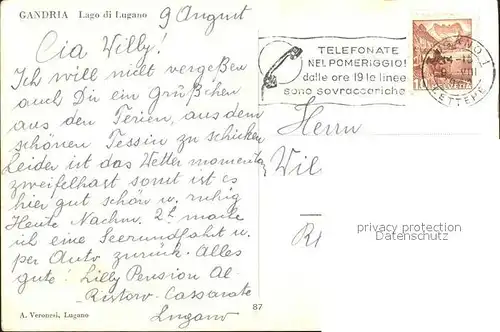 GANDRIA Lago di Lugano
9 August
Cia Willy!
Ich will nicht vergeßen
auch Dir ein Grüßchen
aus den Ferien, aus dem
schönen Tessin zu schicken
Leider ist das Wetter momentan
zweifelhaft sonst ist es
hier gut schön u. ruhig
Heute Nachm. 2h mache
ich eine Seerundfahrt u.
per Auto zurück. Alles
gute! Lilly Pension Al-
Ristoro-Cassarate
Lugano
A. Veronesi, Lugano
87
TELEFONATE
NEL POMERIGGIO!
dalle ore 19 le linee
sono sovraccariche
LUGANO 1
LETTERE
Herrn
Wil
privacy protection
Datenschutz